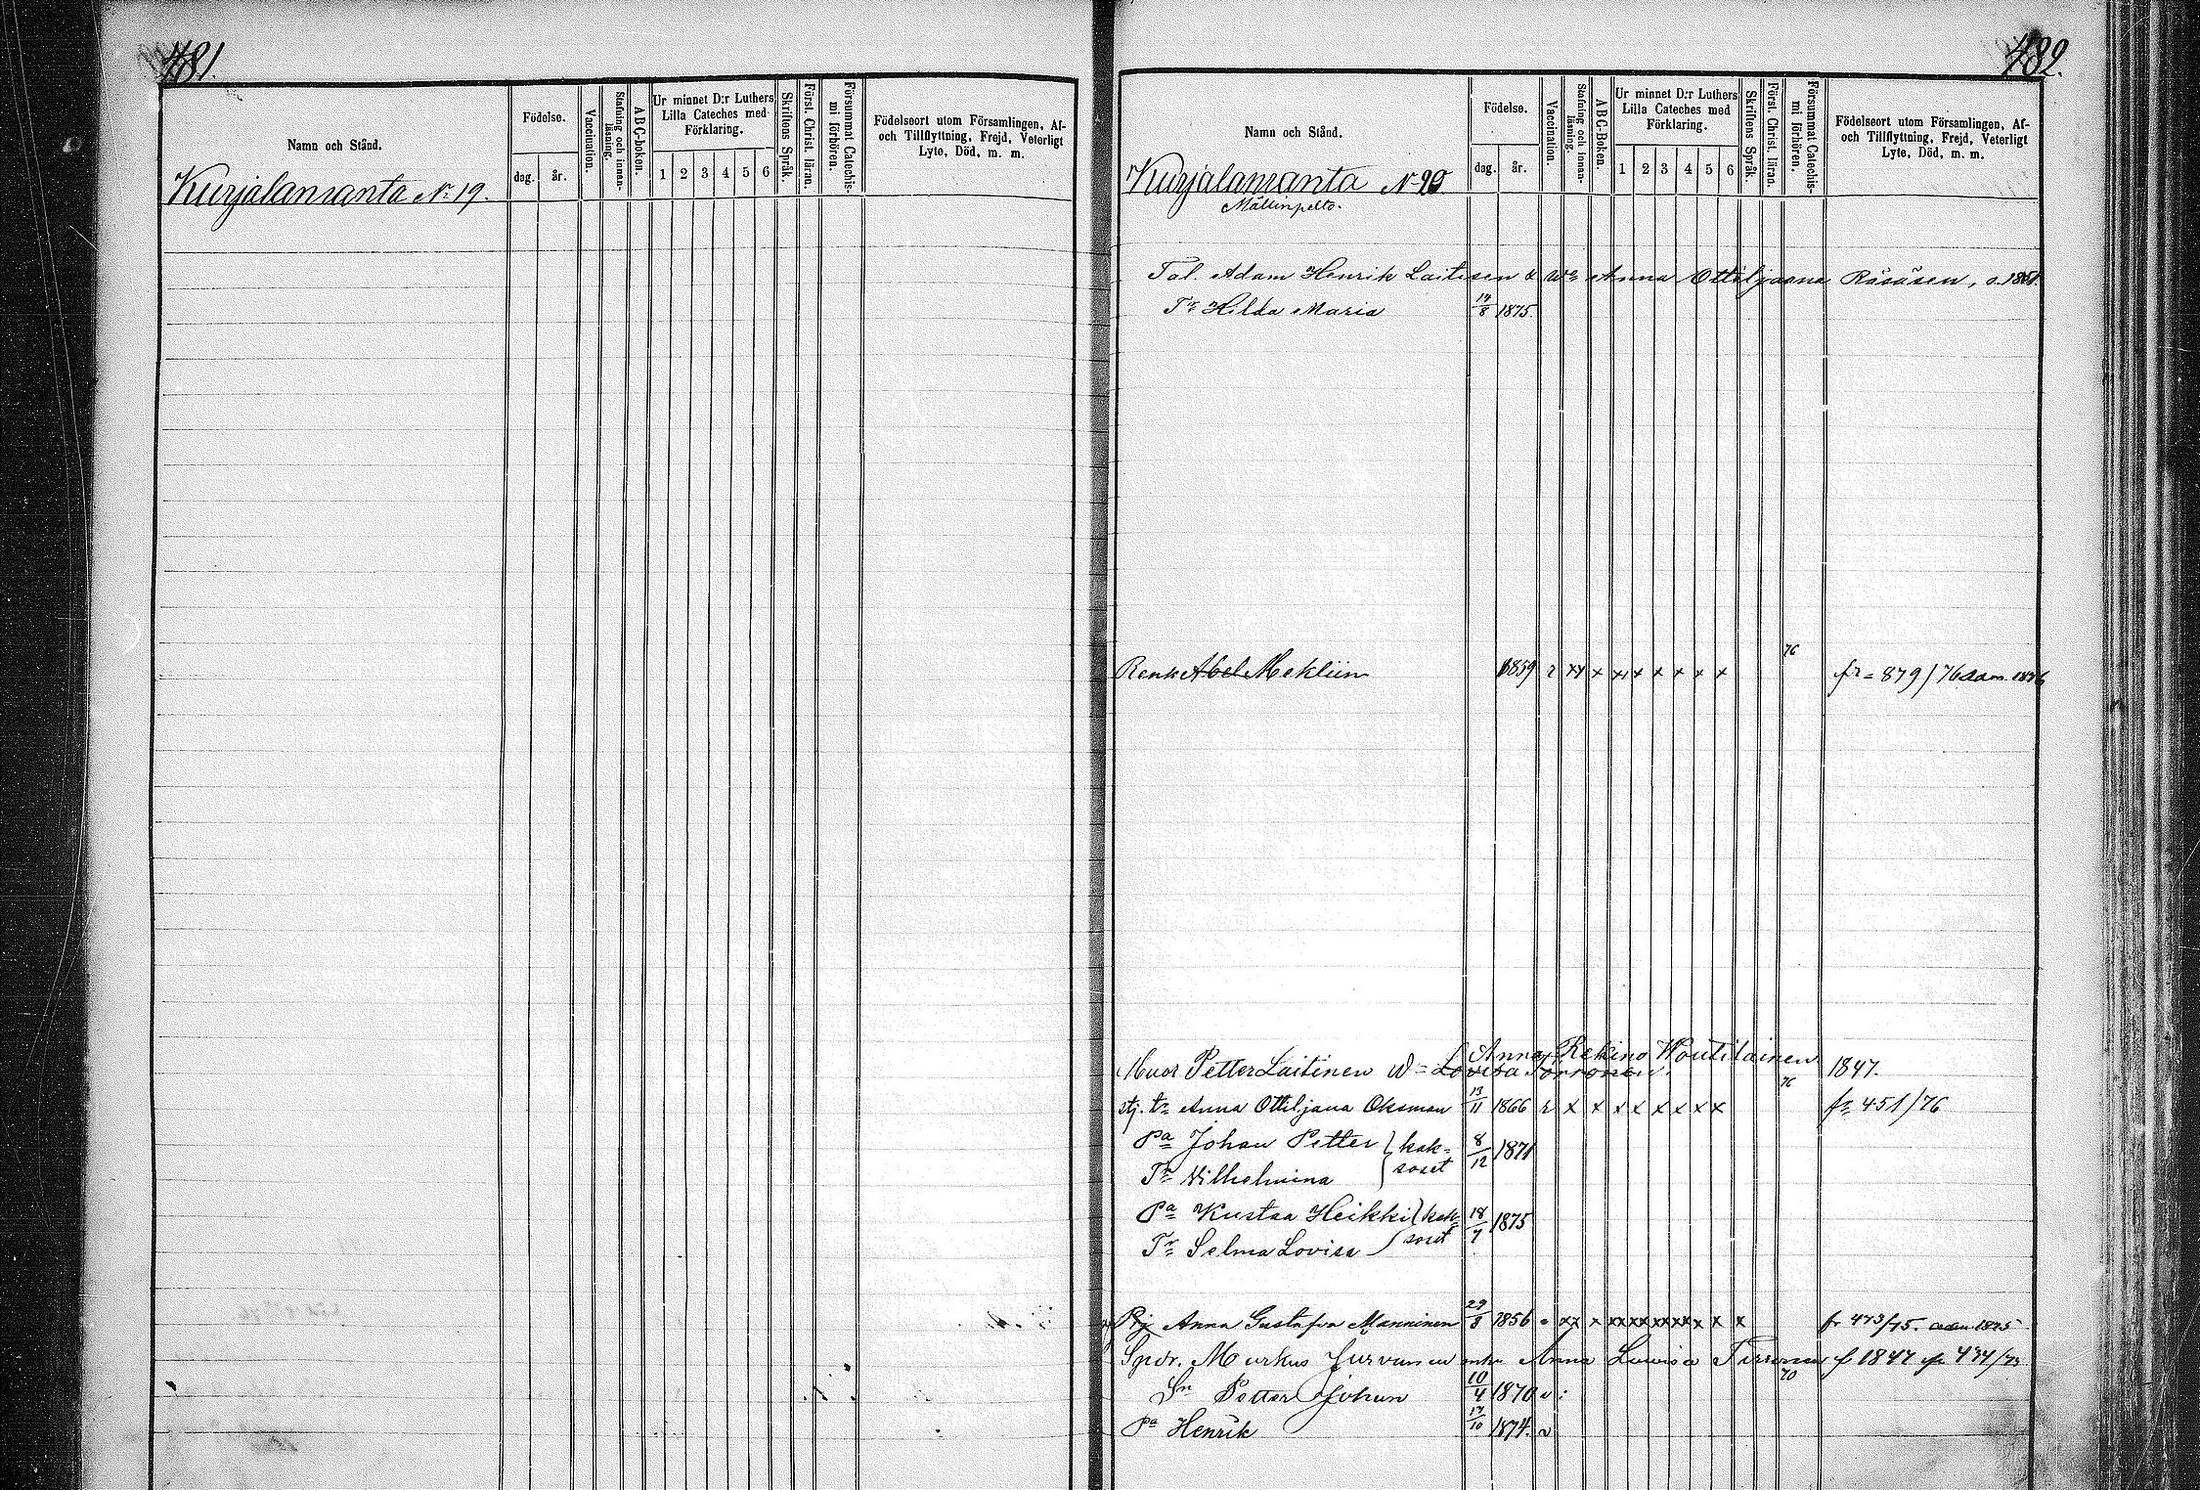 481.
Namn och Stånd.
Födelse.
dag. år.
Vaccination.
Stafning och innanläsning.
A B C-boken.
Ur minnet D:r Luthers Lilla Cateches med Förklaring.
1 2 3 4 5 6
Skriftens Språk.
Först. Christ. läran.
Försummat Catechismi förhören.
Födelseort utom Församlingen, Af- och Tillflyttning, Frejd, Veterligt Lyte, Död, m. m.
Kurjalanranta No 19.
482.
Namn och Stånd.
Födelse.
dag. år.
Vaccination.
Stafning och innanläsning.
A B C-Boken.
Ur minnet D:r Luthers Lilla Cateches med Förklaring.
1 2 3 4 5 6
Skriftens Språk.
Först. Christ. läran.
Försummat Catechismi förhören.
Födelseort utom Församlingen, Af- och Tillflyttning, Frejd, Veterligt Lyte, Död, m. m.
Kurjalanranta No 20.
Mällinpelto.
Tal. Adam Henrik Laitinen & Wo Anna Ottiljaana Räsäsen, s. 1851.
Tr Hilda Maria 14/8 1875.
76
Renk Abel Mekliin 1859 r xx x x x x x x x fr = 879/76 adm. 1876
Anna Rekina Woutilainen
Muor Petter Laitinen W= Lovisa Törrönen. 1847.
76
stj. tr Anna Ottiljana Oksman 13/11 1866 r x x x x x x x x fr 451/76
Pa Johan Petter } kak= 8/12 1871
Tr Vilhelmina soset
Pa Kustaa Heikki } kak= 18/7 1875
Tr Selma Lovisa soset
Pij Anna Gustafva Manninen 29/8 1856 xx x xx xx xx xx x x x fr 473/75. adm 1875
Spdr. Markus Jurvanen mhu Anna Lovisa Tirronen f 1847 fr 434/73
70
Sn Petter Johan 10/4 1870 v
Pa Henrik 17/10 1874. v